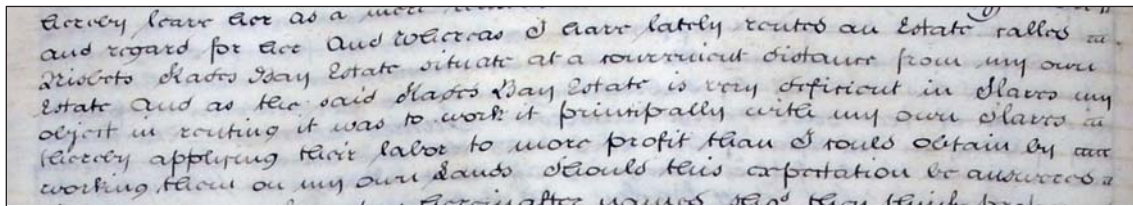 hereby leave her as a
and regard for her And Whereas I have lately rented an Estate called
Nisbets Slades Bay Estate situate at a convenient distance from my own
Estate And as the said Slades Bay Estate is very deficient in Slaves my
object in renting it was to work it principally with my own Slaves
thereby applying their labor to more profit than I could obtain by
working them on my own Lands Should this expectation be answered
hereinafter named shod they think